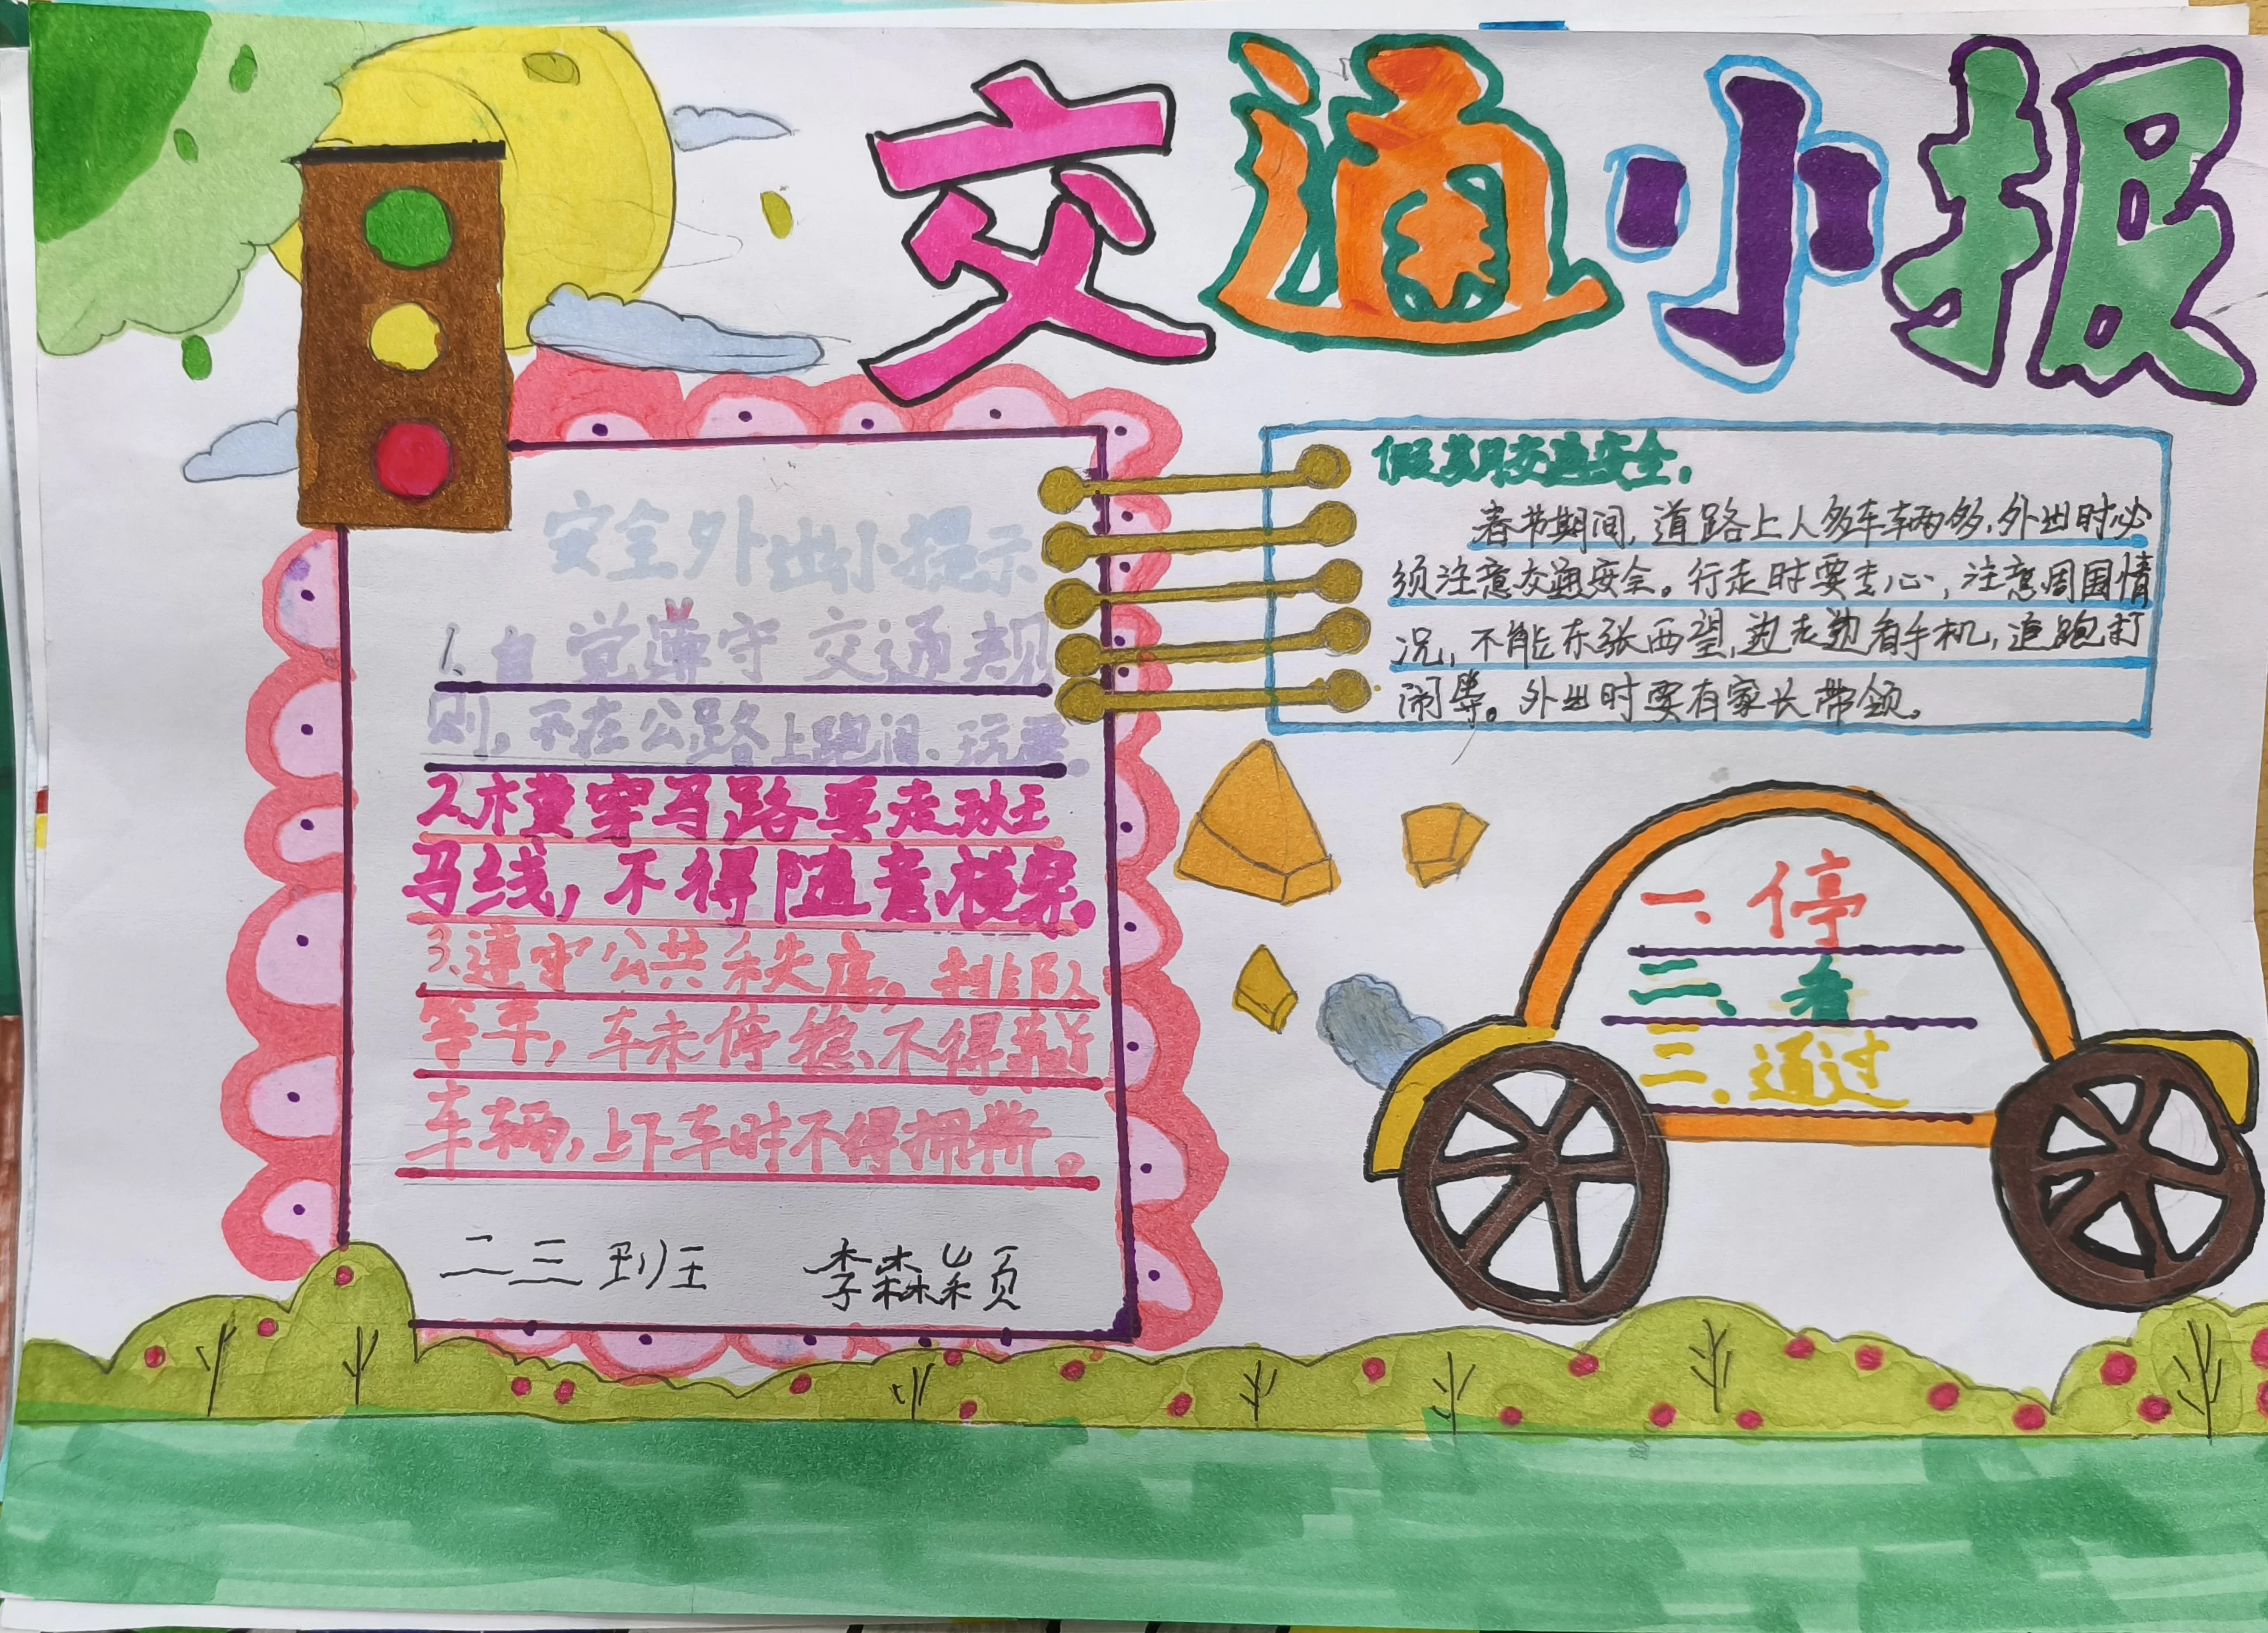 交通小报
安全外出小提示
1、自觉遵守交通规
则，不在公路上跑闹、玩耍。
2、横穿马路要走班
马线，不得随意横穿。
3、遵守公共秩序，排队
等车，车未停稳、不得靠近
车辆，上下车时不得拥挤。
二三班 李森颖
假期交通安全。
春节期间，道路上人多车辆多，外出时必
须注意交通安全。行走时要专心，注意周围情
况，不能东张西望，边走边看手机，追跑打
闹等。外出时要有家长带领。
一、停
二、看
三、通过